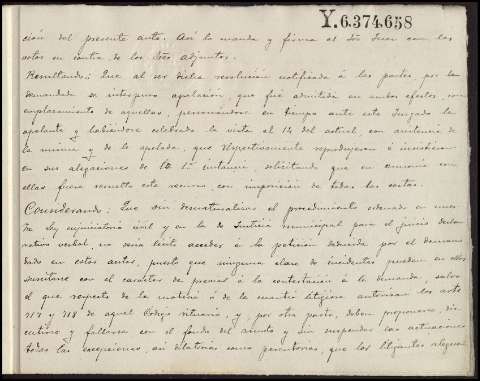 Y.6.374.658
ción del presente auto. Así lo manda y firma el Sr. Juez con los
votos en contra de los Sres adjuntos.
Resultando: Que al ser dicha resolución notificada á las partes, por la
demandada se interpuso apelación, que fué admitida en ambos efectos, con
emplazamiento de aquellas, personándose en tiempo ante este Juzgado la
apelante y habiéndose celebrado la vista el 14 del actual, con asistencia de
la misma y de la apelada, que respectivamente reprodujeron é insistieron
en sus alegaciones de la 1ª instancia, solicitando que en armonía con
ellas fuera resuelto este recurso, con imposición de todas las costas.
Considerando: Que sin desnaturalizar el procedimiento ordenado en nues-
tra Ley enjuiciaria civil y en la de Justicia municipal para el juicio decla-
rativo verbal, no sería lícito acceder á la petición deducida por el deman-
dado en estos autos, puesto que ninguna clase de incidentes pueden en ellos
suscitarse con el carácter de previos á la contestación á la demanda, salvo
el que respecto de la materia ó de la cuantía litigiosa autorizan los arts
717 y 718 de aquel Código rituario, y, por otra parte, deben proponerse, dis-
cutirse y fallarse con el fondo del asunto y sin suspender las actuaciones
todas las excepciones, así dilatorias como perentorias, que los litigantes aleguen